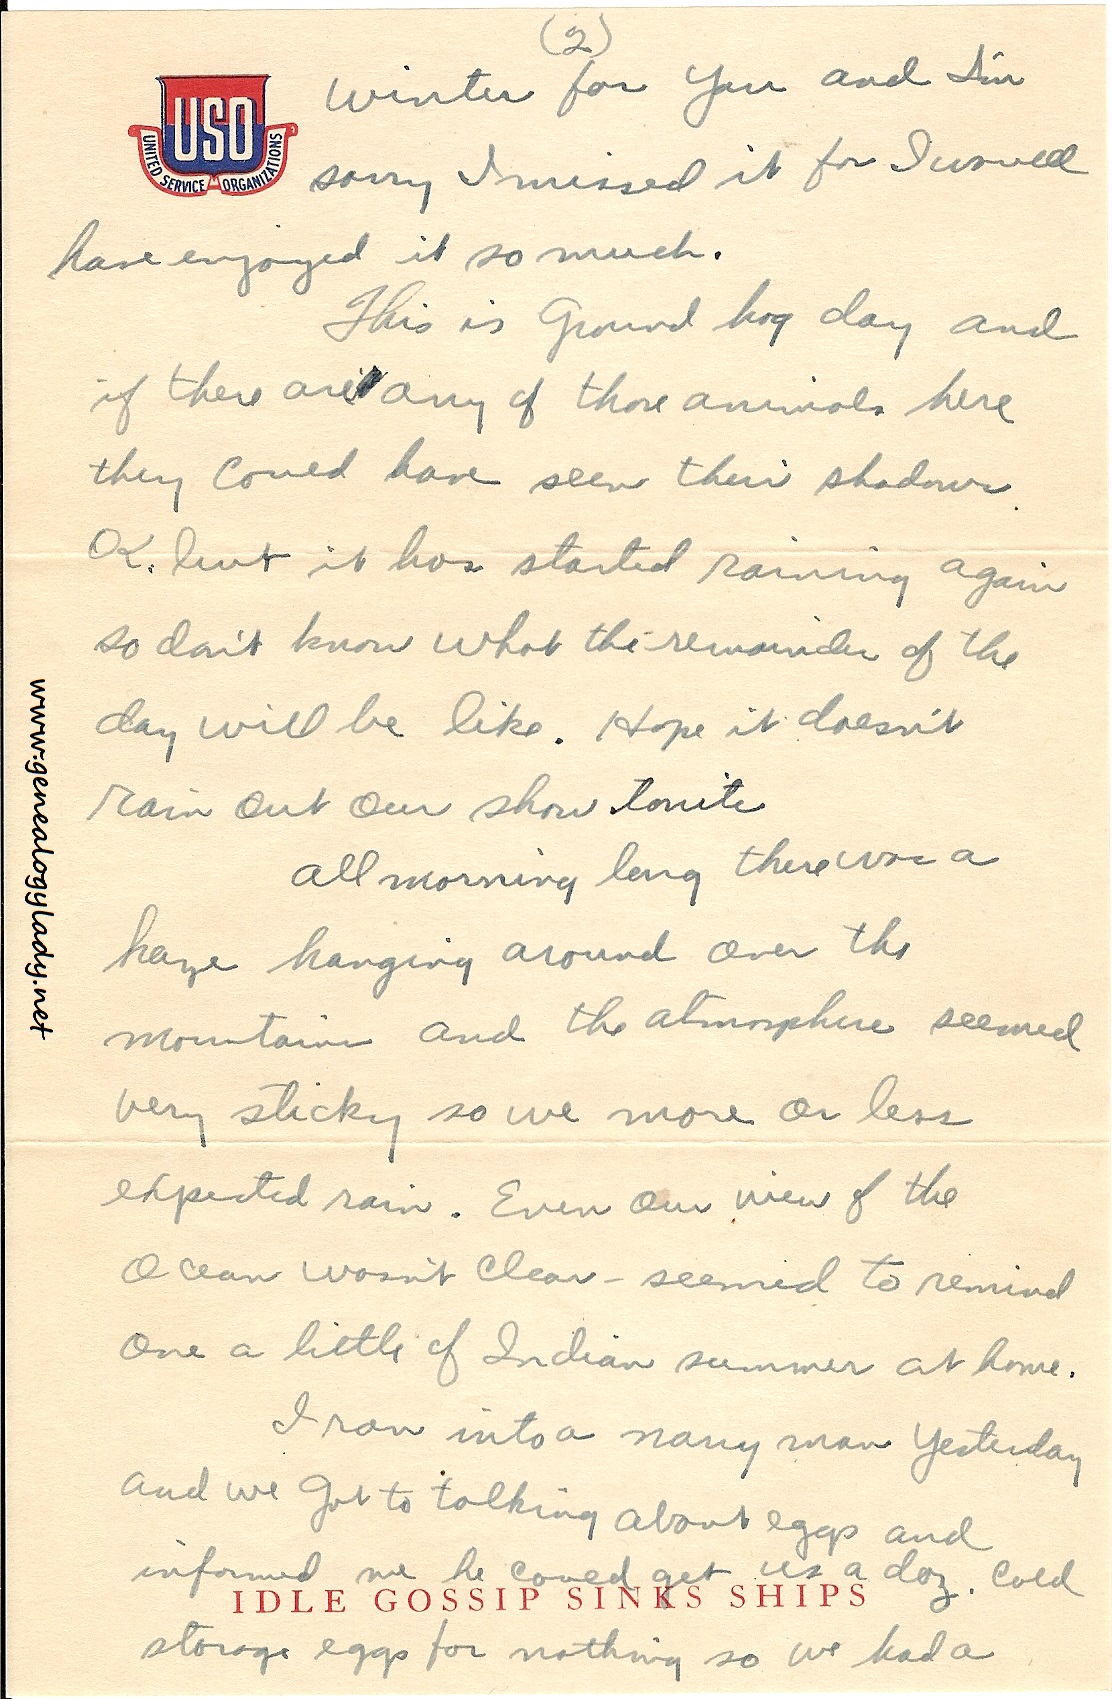 (2)
USO
UNITED SERVICE ORGANIZATIONS
winter for you and I'm
sorry I missed it for I would
have enjoyed it so much.
This is Ground hog day and
if there are any of those animals here
they could have seen their shadows
OK. but it has started raining again
so don't know what the remainder of the
day will be like. Hope it doesn't
rain out our show tonite
all morning long there was a
haze hanging around over the
mountains and the atmosphere seemed
very sticky so we more or less
expected rain. Even our view of the
Ocean wasn't clear - seemed to remind
one a little of Indian summer at home.
I ran into a navy man yesterday
and we got to talking about eggs and
informed me he could get us a doz. cold
IDLE GOSSIP SINKS SHIPS
storage eggs for nothing so we had a
www.genealogylady.net